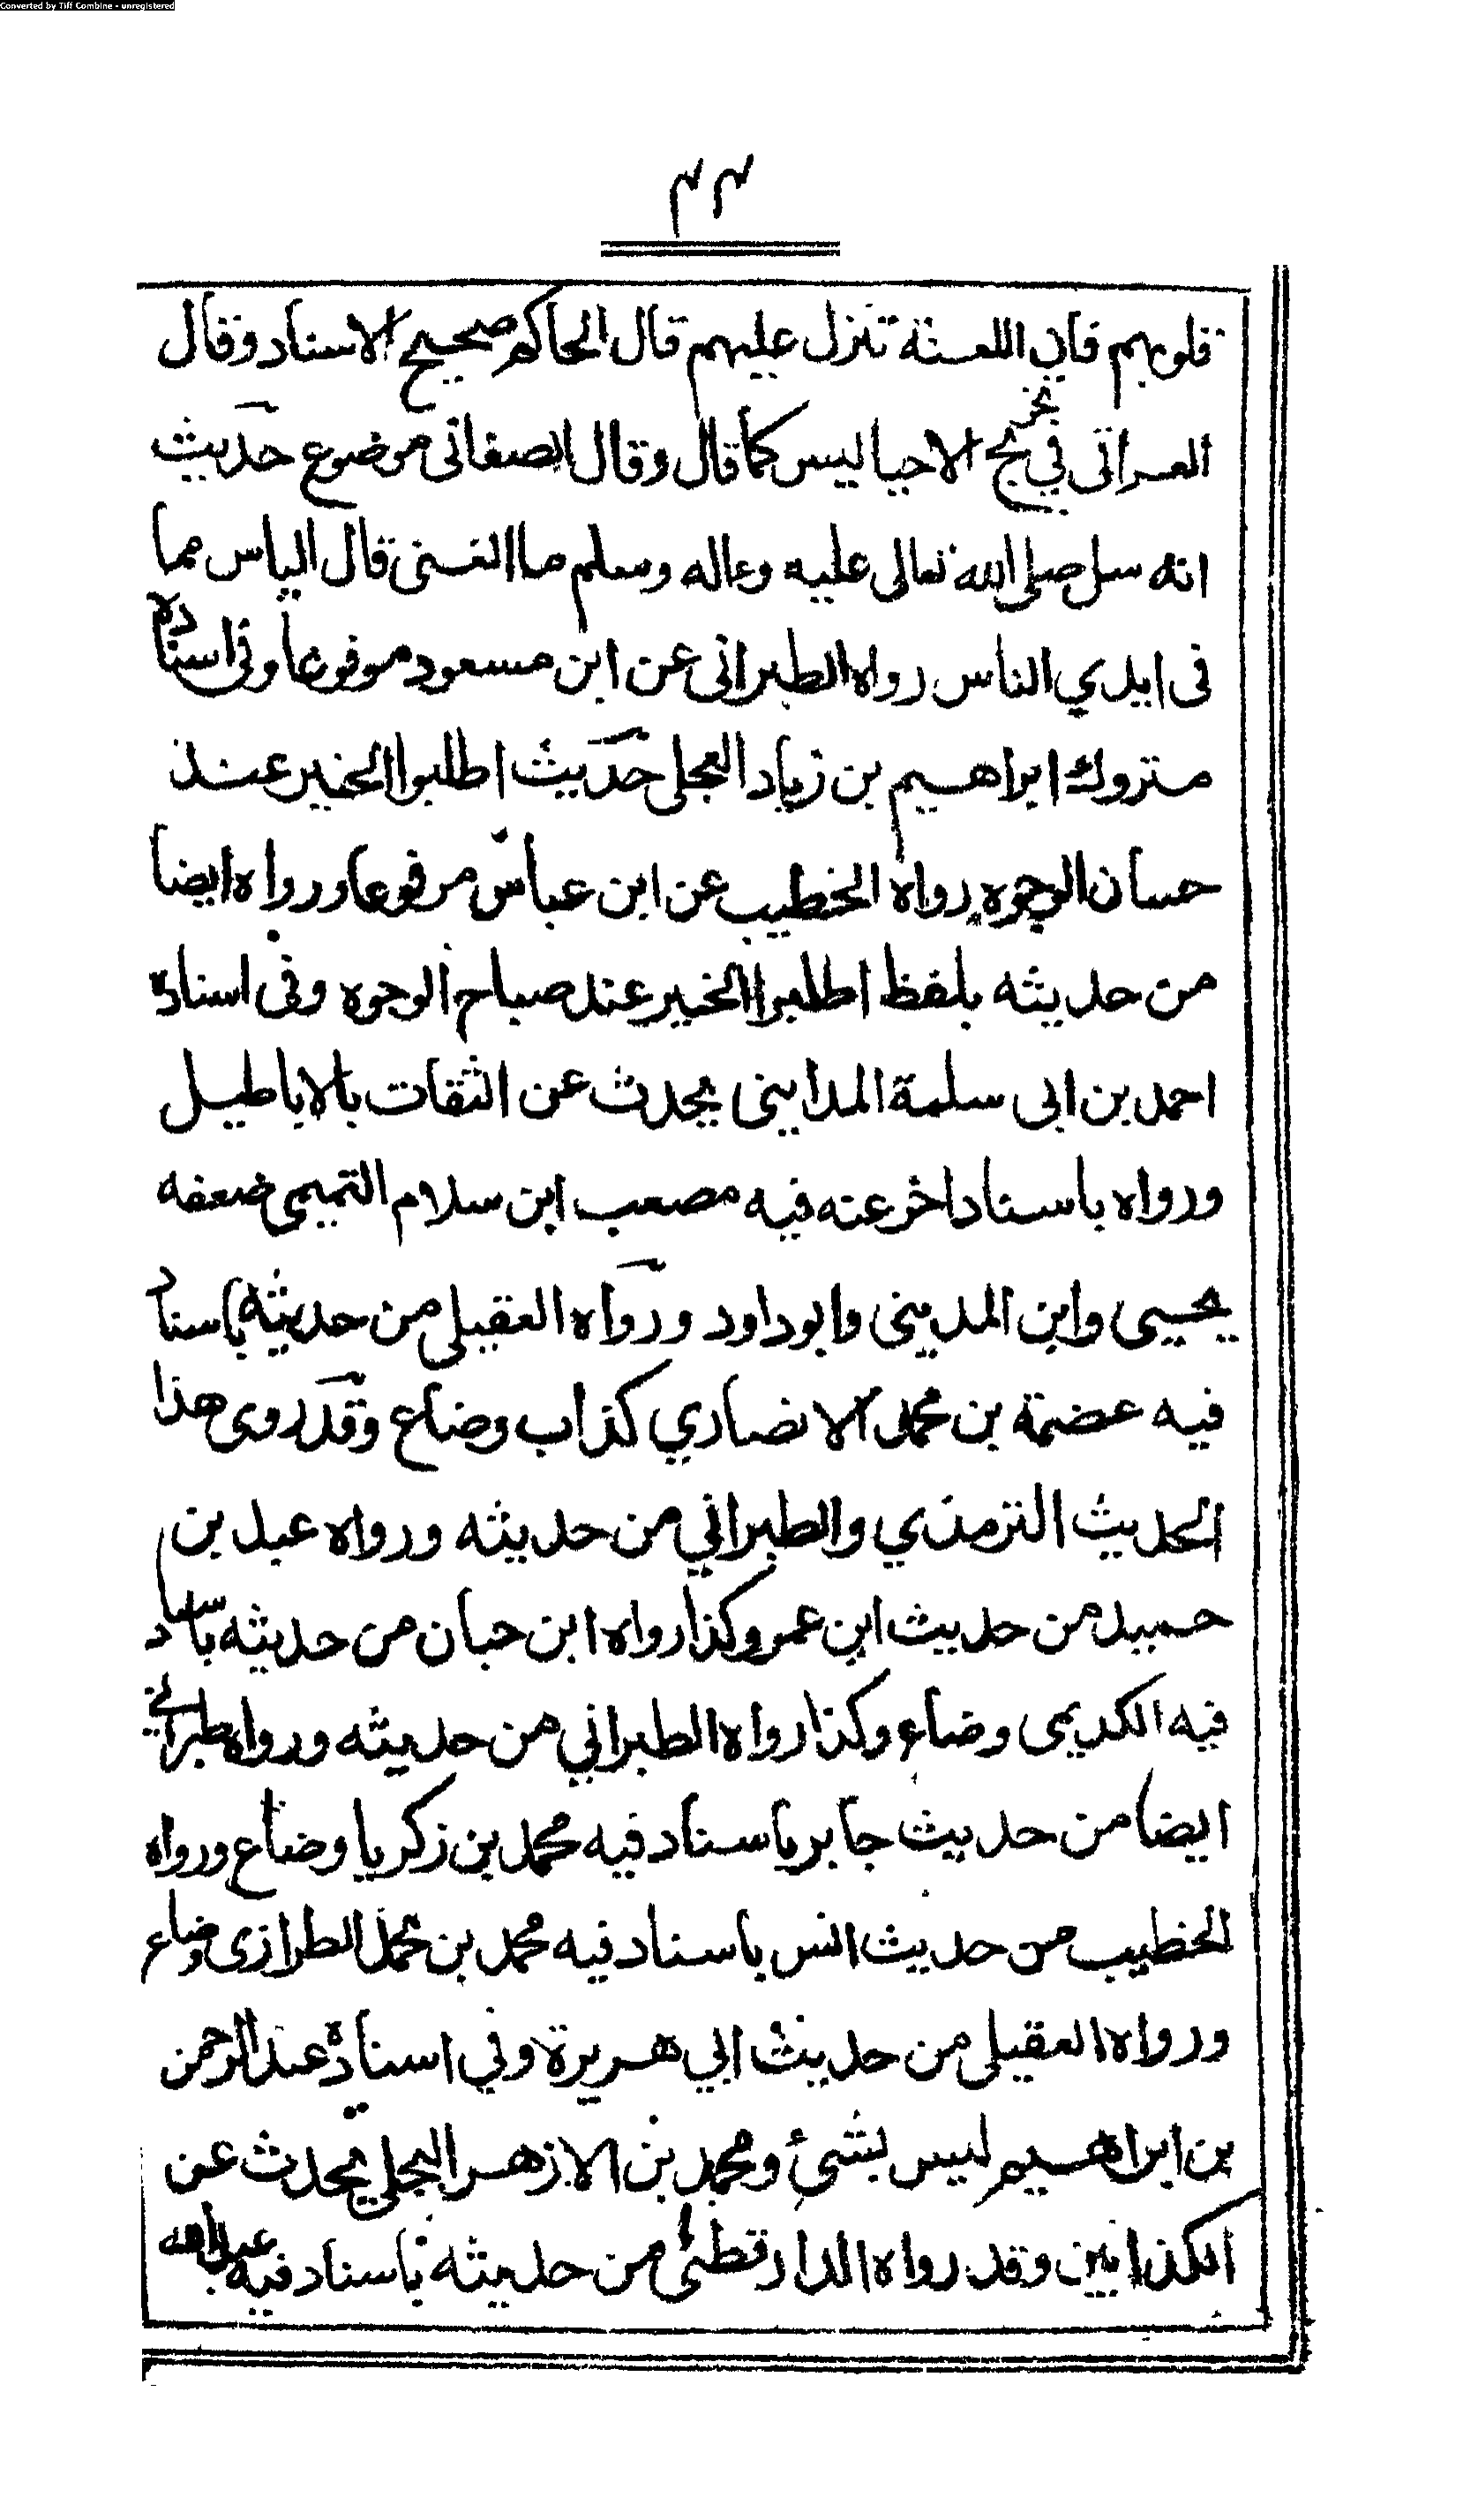 Converted by Tiff Combine - unregistered
٣٣
قلوبهم فان اللعنة تنزل عليهم قال الحاكم صحيح الاسناد وقال
العراقي في تخريج الاحيا ليس كما قال وقال الصغاني موضوع حديث
انه سئل صلى الله تعالى عليه وعاله وسلم ما الغنى قال الياس مما
في ايدي الناس رواه الطبراني عن ابن مسعود موفوعا وفي اسناده
متروك ابراهيم بن زياد العجلي حديث اطلبوا الخير عند
حسان الوجوه رواه الخطيب عن ابن عباس مرفوعا ورواه ايضا
من حديثه بلفظ اطلبوا الخير عند صباح الوجوه وفي اسناده
احمد بن ابي سلمة المدايني يحدث عن الثقات بالاباطيل
ورواه باسناد اخر عنه فيه مصعب ابن سلام التميمي ضعفه
يحيى وابن المديني وابوداود ورواه العقيلي من حديثه باسناد
فيه عضمة بن محمد الانصاري كذاب وضاع وقد روى هذا
الحديث الترمذي والطبراني من حديثه ورواه عبد بن
حميد من حديث ابن عمر وكذا رواه ابن حبان من حديثه باسناد
فيه الكديمى وضاع وكذا رواه الطبراني من حديثه ورواه طبراني
ايضا من حديث جابر باسناد فيه محمد بن زكريا وضاع ورواه
الخطيب من حديث انس باسناد فيه محمد بن محمد الطرازى وضاع
ورواه العقيلي من حديث ابي هريرة وفي اسناده عبد الرحمن
بن ابراهيم ليس بشئ ومحمد بن الازهر البجلي يحدث عن
الكذابين وقد رواه الدارقطني من حديثه باسناد فيه عبد الله